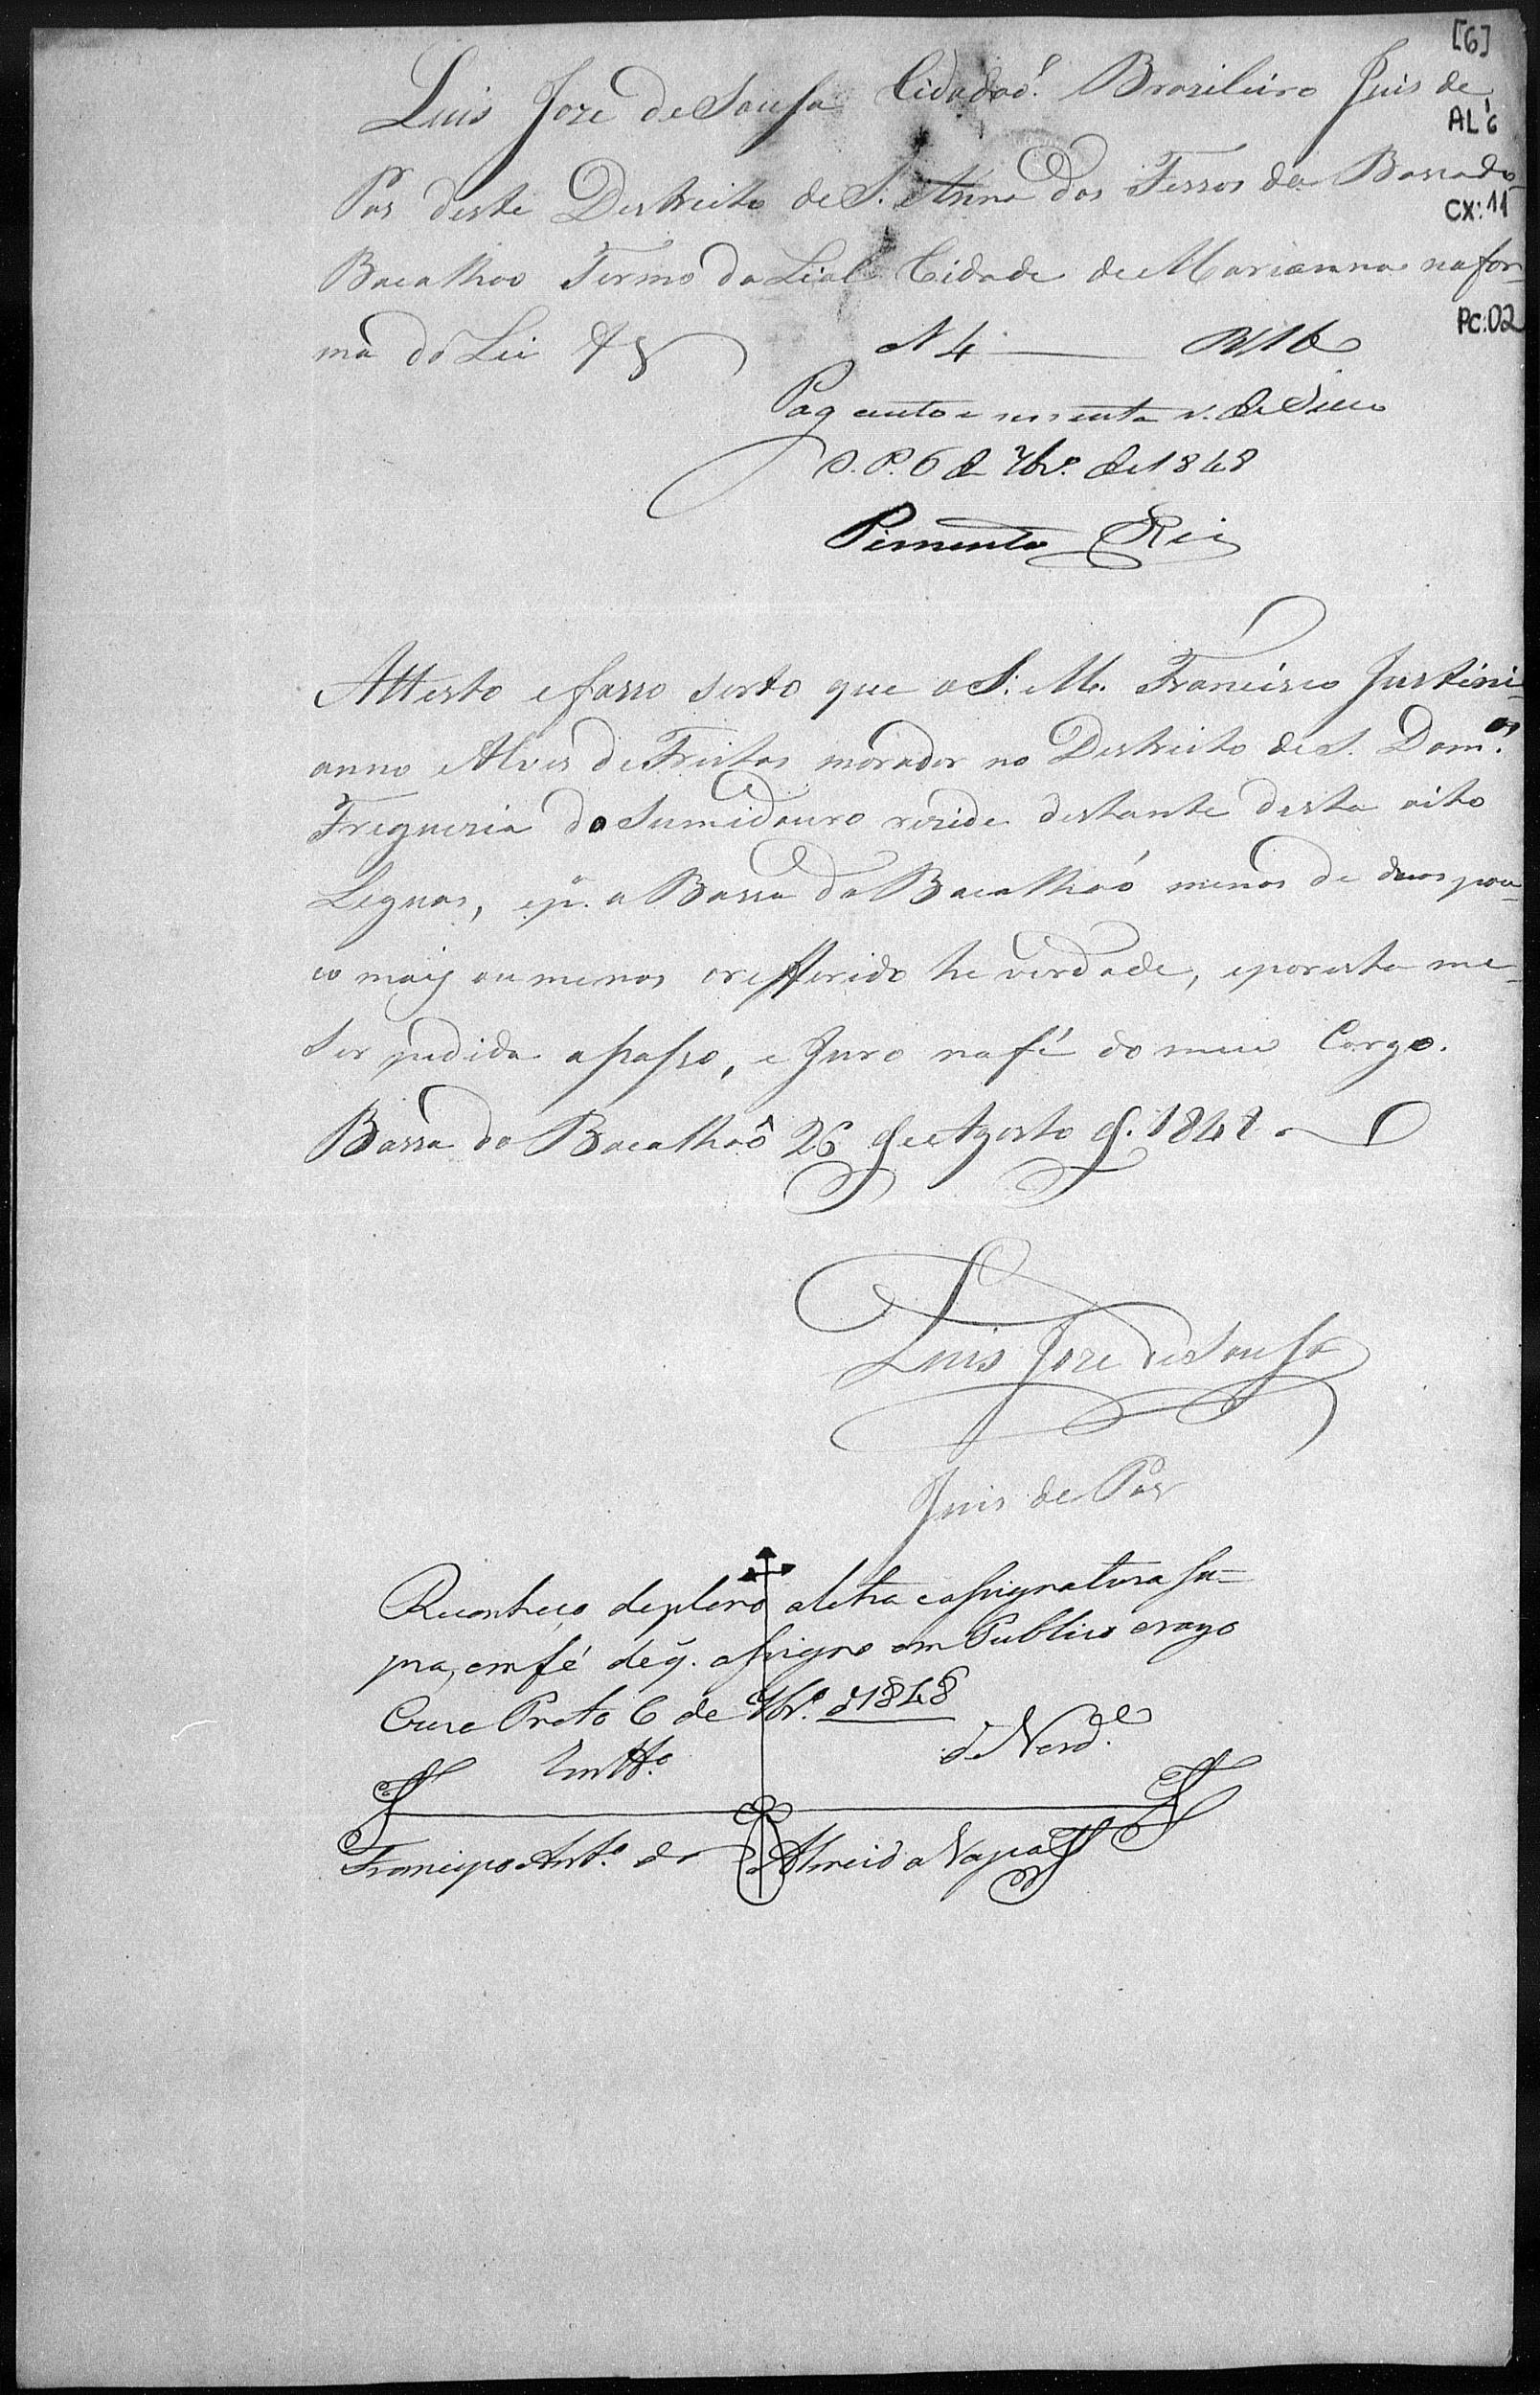 [6]
Luis Joze de Sousa Cidadaó. Brazileiro Juis de
AL 6
Pas deste Destricto de S. Anna dos Ferros da Barra do
CX: 11
Bacalhao Termo da Lial Cidade de Marianna na for-
PC: 02
ma da Lei &
N 4 — 160
Pag cento e sessenta r. de Sello
O. P. 6 de 7br.o de 1848
Pimenta Reis
Attesto e fasso serto que o S. M. Francisco Justini-
anno Alves de Freitas morador no Destricto de S. Dom.os
Freguezia do Sumidouro rezide destante desta oito
Leguas, e p.a a Barra do Bacalhaó menos de duas pou-
co mais ou menos o refferido he verdade, e por esta me
ser pedida a passo, e Juro na fé do meu Cargo.
Barra do Bacalhaô 26 de Agosto d. 1848
Luis Joze de Sousa
Juis de Pas
Reconheço de pleno a letra e assignatura su-
pra, em fé de q. assigno em Publico e razo
Ouro Preto 6 de 7br.o d 1848
Em tt.o de Verd.e
Francisco Ant.o de Almeida